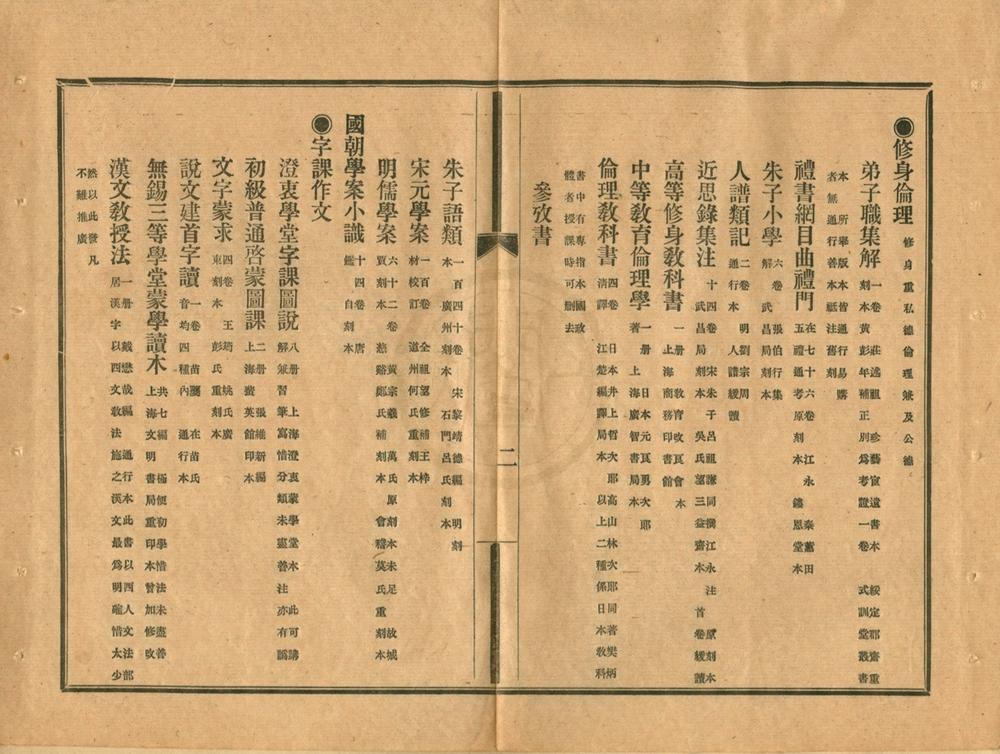 ●修身倫理 修身重私德倫理兼及公德
弟子職集解 一卷 莊述祖 珍藝宧遺書本 綏定郡齋重刻本 黃彭年補正別爲考證一卷 式訓堂叢書本 所舉版本皆通行易購者無通行善本祗注舊刻
禮書綱目曲禮門 在七十六卷 江永 秦蕙田五禮通考原刻本 鏤恩堂本
朱子小學 六卷 張伯行集解 武昌局刻本
人譜類記 二卷 明劉宗周 通行本 人譜緩讀
近思錄集注 十四卷 宋朱子呂祖謙同撰 江永注 原刻本 武昌局刻本 吳氏望三益齋本 首卷緩讀
高等修身教科書 一册 教育改良會本 上海商務印書館
中等教育倫理學 一册 日本元良勇次郎著 上海廣智書局本
倫理教科書 四卷 日本井上哲次郎高山林次郎同著 樊炳清譯 江楚編譯局本 以上二種係日本教科書中有專指本國政體者授課時可删去
參攷書
朱子語類 一百四十卷 宋黎靖德編 明刻本 廣州局刻本 石門呂氏刻本
宋元學案 一百卷 全祖望修補 王梓材校訂 道州何氏重刻本
明儒學案 六十二卷 黃宗羲 萬氏原刻本未足 故城賈刻本 慈谿鄭氏補刻本 會稽莫氏重刻本
國朝學案小識 十四卷 唐鑑 自刻本
●字課作文
澄衷學堂字課圖說 八册 上海澄衷蒙學堂本 此可講解兼習筆寫惜分類未盡善注亦有譌
初級普通啓蒙圖課 二册 張維新編 上海蜚英館印本
文字蒙求 四卷 王筠 姚氏廣東刻本 彭氏重刻本
說文建首字讀 一卷 苗夔 在苗氏音均四種內 通行本
無錫三等學堂蒙學讀本 共七編 極便初學惜法未盡善 上海文明書局重印本曾加修改
漢文教授法 一册 戴懋哉編 通行本 此書以西人文法部居漢字以西文教法施之漢文最爲明確惜太少然以此發凡不難推廣
二